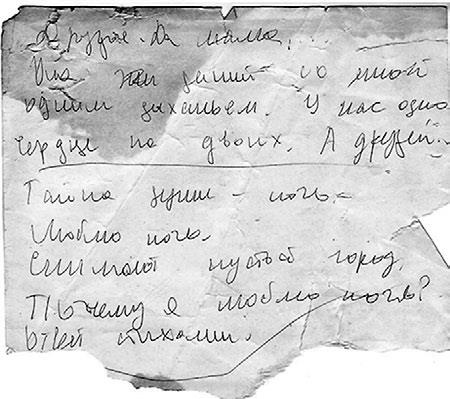 Друзья. Да мама...
Она живёт со мной
одним дыханьем. У нас одно
сердце на двоих. А друзей..
Тайна души - ночь.
Люблю ночь.
Снимают пустой город.
Почему я люблю ночь?
Ответ стихами.